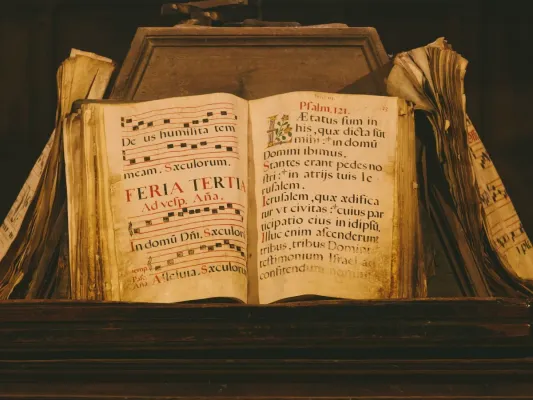 De us humilita tem
meam. Sæculorum.
FERIA TERTIA
Ad vesp. Aña.
In domū Dñi. Sæculor
temp.
Pas.
Aña
Alleluia. Sæculor
Psalm. 121.
LÆtatus sum in
his, quæ dicta sūt
mihi:* in domū
Domini ibimus.
Stantes erant pedes no
stri:* in atrijs tuis Ie
rusalem.
Ierusalem, quæ ædifica
tur vt civitas:* cuius par
ticipatio eius in idipsū.
Illuc enim ascenderunt
tribus, tribus Domini:
testimonium Israel ad
confitendum nomini